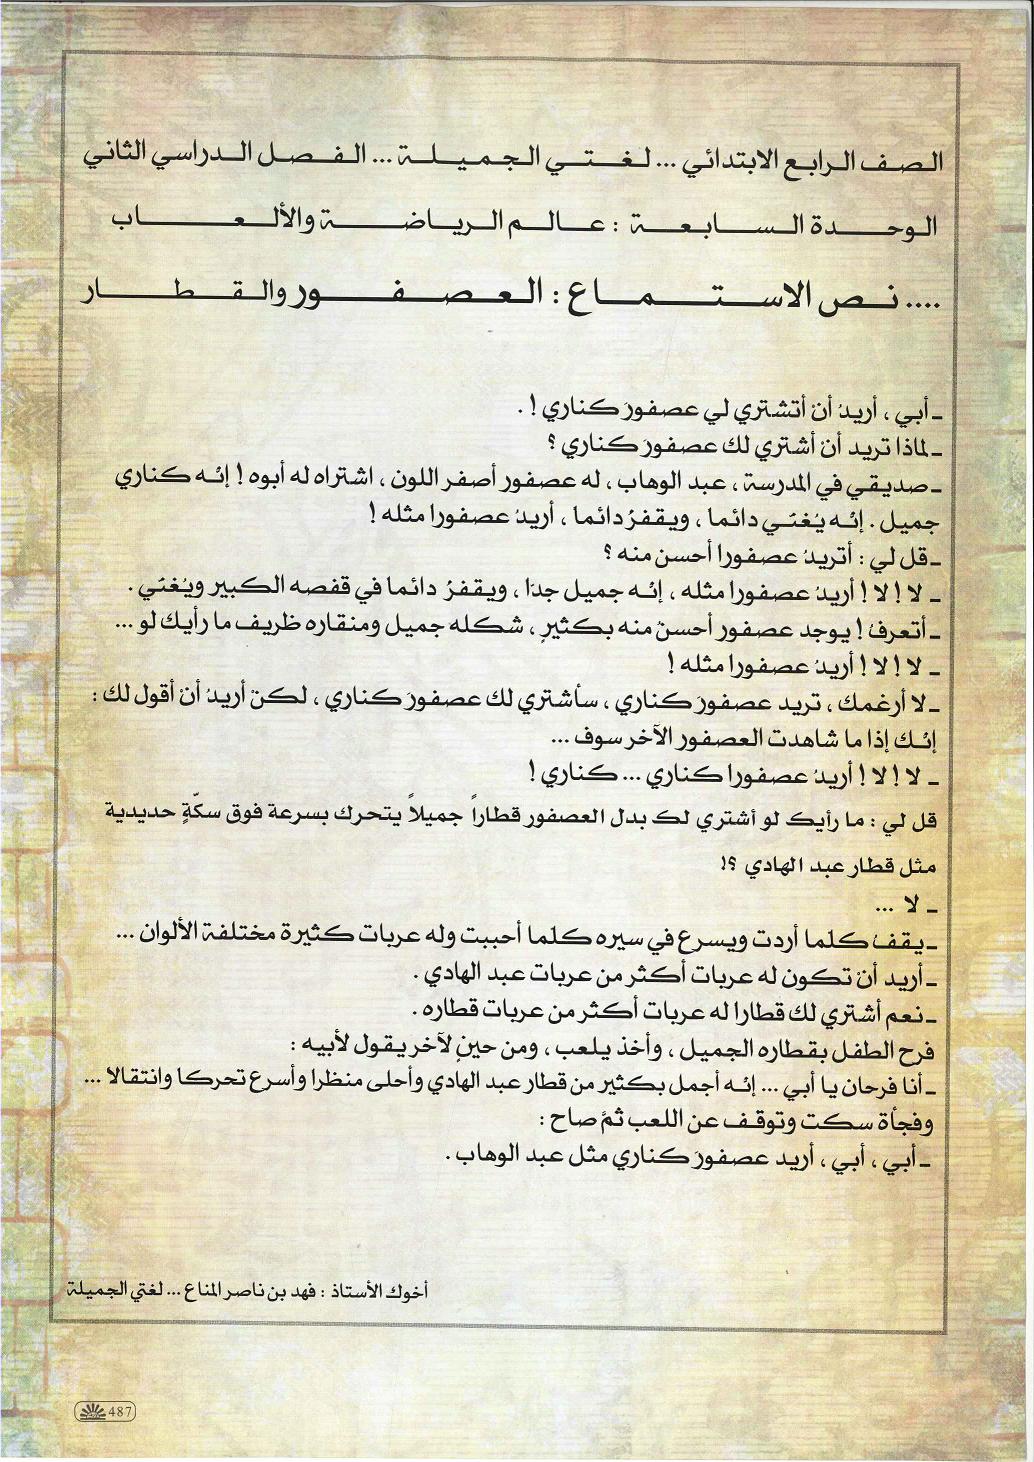 الصف الرابع الابتدائي ... لغتي الجميلة ... الفصل الدراسي الثاني
الوحدة السابعة : عالم الرياضة والألعاب
.... نص الاستماع : العصفور والقطار
ـ أبي ، أريدُ أنْ أتشتري لي عصفورَ كناري ! .
ـ لماذا تريد أنْ أشتري لك عصفورَ كناري ؟
ـ صديقي في المدرسة ، عبد الوهاب ، له عصفور أصفر اللون ، اشتراه له أبوه ! إنّه كناري
جميل . إنّه يُغنّي دائما ، ويقفزُ دائما ، أريدُ عصفورا مثله !
ـ قل لي : أتريدُ عصفورا أحسن منه ؟
ـ لا ! لا ! أريدُ عصفورا مثله ، إنّه جميل جدّا ، ويقفزُ دائما في قفصه الكبير ويُغنّي .
ـ أتعرفُ ! يوجد عصفور أحسنْ منه بكثيرٍ ، شكله جميل ومنقاره ظريف ما رأيك لو ...
ـ لا ! لا ! أريدُ عصفورا مثله !
ـ لا أرغمك ، تريد عصفورَ كناري ، سأشتري لك عصفورَ كناري ، لكنْ أريدُ أنْ أقول لك :
إنّك إذا ما شاهدت العصفور الآخر سوف ...
ـ لا ! لا ! أريدُ عصفورا كناري ... كناري !
قل لي : ما رأيك لو أشتري لك بدل العصفور قطاراً جميلاً يتحرك بسرعة فوق سكّةٍ حديدية
مثل قطار عبد الهادي ؟!
ـ لا ...
ـ يقف كلما أردت ويسرع في سيره كلما أحببت وله عربات كثيرة مختلفة الألوان ...
ـ أريد أنْ تكون له عربات أكثر من عربات عبد الهادي .
ـ نعم أشتري لك قطارا له عربات أكثر من عربات قطاره .
فرح الطفل بقطاره الجميل ، وأخذ يلعب ، ومن حينٍ لآخر يقول لأبيه :
ـ أنا فرحان يا أبي ... إنّه أجمل بكثير من قطار عبد الهادي وأحلى منظرا وأسرع تحركا وانتقالا ...
وفجأة سكت وتوقف عن اللعب ثمّ صاح :
ـ أبي ، أبي ، أريد عصفورَ كناري مثل عبد الوهاب .
أخوك الأستاذ : فهد بن ناصر المناع ... لغتي الجميلة
487